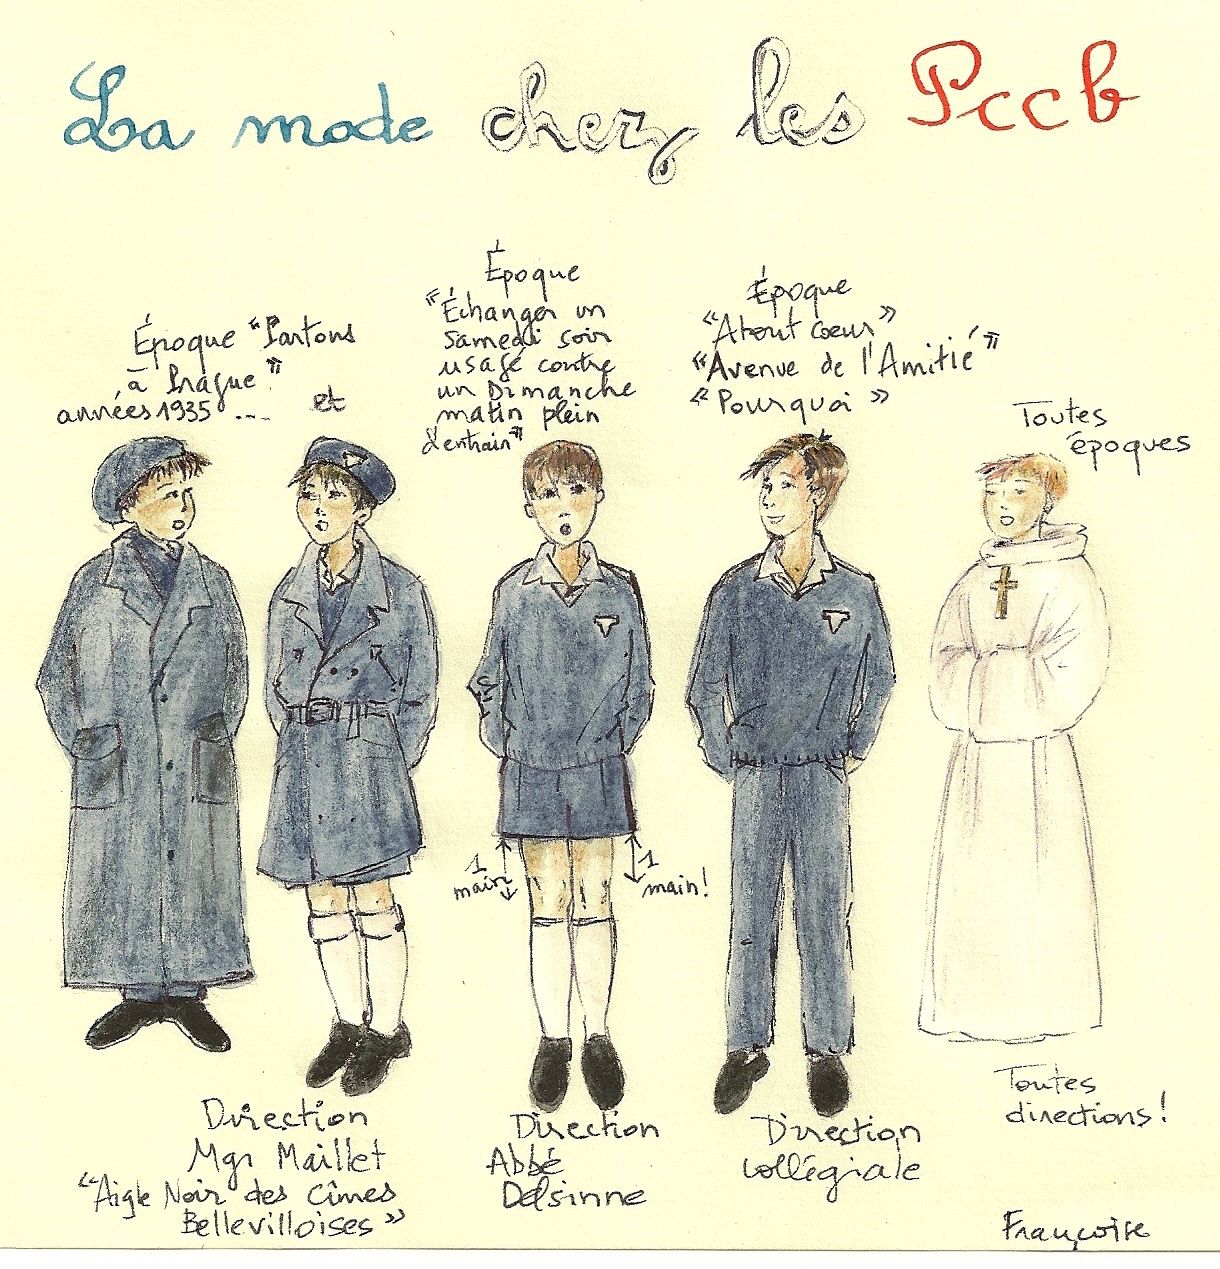 La mode chez les Pccb
Époque "Partons
à Prague"
années 1935 ...
et
Époque
"Échanger un
samedi soir
usagé contre
un Dimanche
matin plein
d'entrain"
Époque
"Atout cœur"
"Avenue de l'Amitié"
"Pourquoi"
Toutes
époques
1
main
1
main!
Direction
Mgr Maillet
"Aigle Noir des Cîmes
Bellevilloises"
Direction
Abbé
Delsinne
Direction
collégiale
Toutes
directions!
Françoise